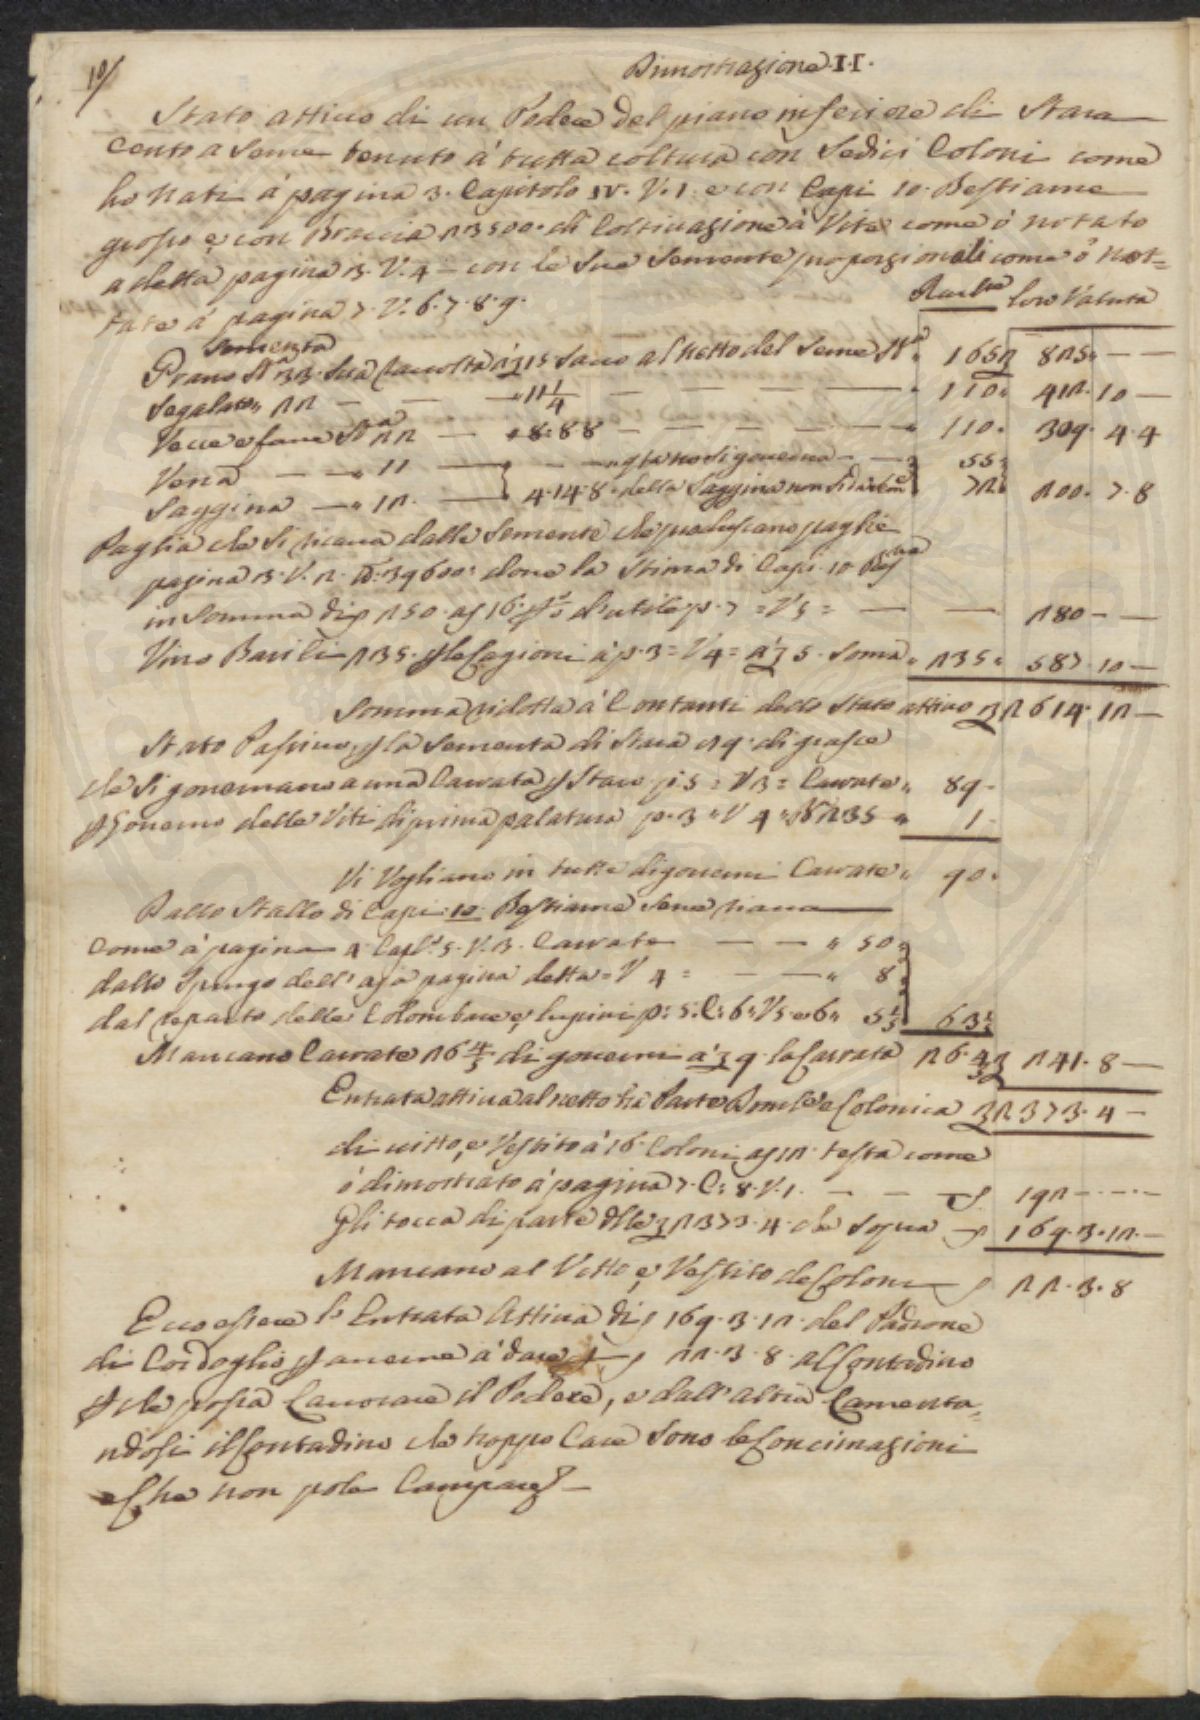 10/
Dimostrazione II.
Stato attivo di un Podere del piano inferiore di Stara
Cento a Seme tenuto à tutta coltura con Sedici Coloni come
ho nati à pagina 3. Capitolo IV. V. 1. e con Capi 10. Bestiame
grosso e con Braccia 23500. di Coltivazione à Vite come è notato
a detta pagina 3. V. 4 – con le Sue Semente proporzionali come è not=
tate à pagina 7. V. 6. 7. 8. 9.
Racolta loro Valuta
Sementa
Grano Sta 33. Sua Raccolta à 15. Staio al netto del Seme Sta 165 825. — —
Segalato 22 — — 11 1/4 — — — 110. 412. 10 —
Vecce e fave Sta 22 — 8:88 — — — — 110. 309. 4. 4
Vena — — 11 — — — non Si governa — — 55
Saggina — 12. — 4.14.8. della Saggina non Si 72. 200. 7. 8
Paglia che Si ricava dalle Semente che producano paglie
pagina 3. V. 2. 39600: dove la Stima di Capi 10 Bestie
in Somma di 250. a 16. d'utile p. 7 = V 5 = — — 280 — —
Vino Barili 235. p le Cagioni à p. 3 = V 4 = à 5. Soma 235. 587. 10 —
Somma ridotta à Contanti dello Stato attivo 2614. 12 —
Stato Passivo, p la Sementa di Stara 29. di grasce
che Si governano a una Carrata p Staio p. 5 = V 3 = Carrate 89.
p Governo delle Viti di prima palatura p. 3 V 4 N 235 1.
Vi Vogliano in tutto di governi Carrate 90.
Dallo Stallo di Capi: 10. Bestiame Sene ricava
Come à pagina 4 Capl. 5. V. 3. Carrate — — 50
dallo Spurgo dell'aja pagina detta = V 4 = — — 8
dal reparto delle Colombare e lupini p: 5: C: 6. V 5. e 6. 5 1/5 63 1/5
Mancano Carrate 26 4/5 di governi à 9. la Carrata 26. 4/5 241. 8 —
Entrata attiva al netto trà Parte Dominicale e Colonica 2373. 4 —
di vitto, e Vestito à 16. Coloni a 12. testa come
è dimostrato à pagina 7. C: 8. V. 1. — — — 192 — — —
Gli tocca di parte delle 2373. 4. che Sopra 169. 3. 12. —
Mancano al Vitto, e Vestito de Coloni 22. 3. 8
Ecco essere l'Entrata Attiva di 169. 3. 12. del Padrone
di Cordoglio p averne à dare 22. 3. 8. al Contadino
p che possa Lavorare il Podere, e dall'altra Lamenta=
ndosi il Contadino che troppo Care Sono le Concimazioni
e Che non pole Campare —